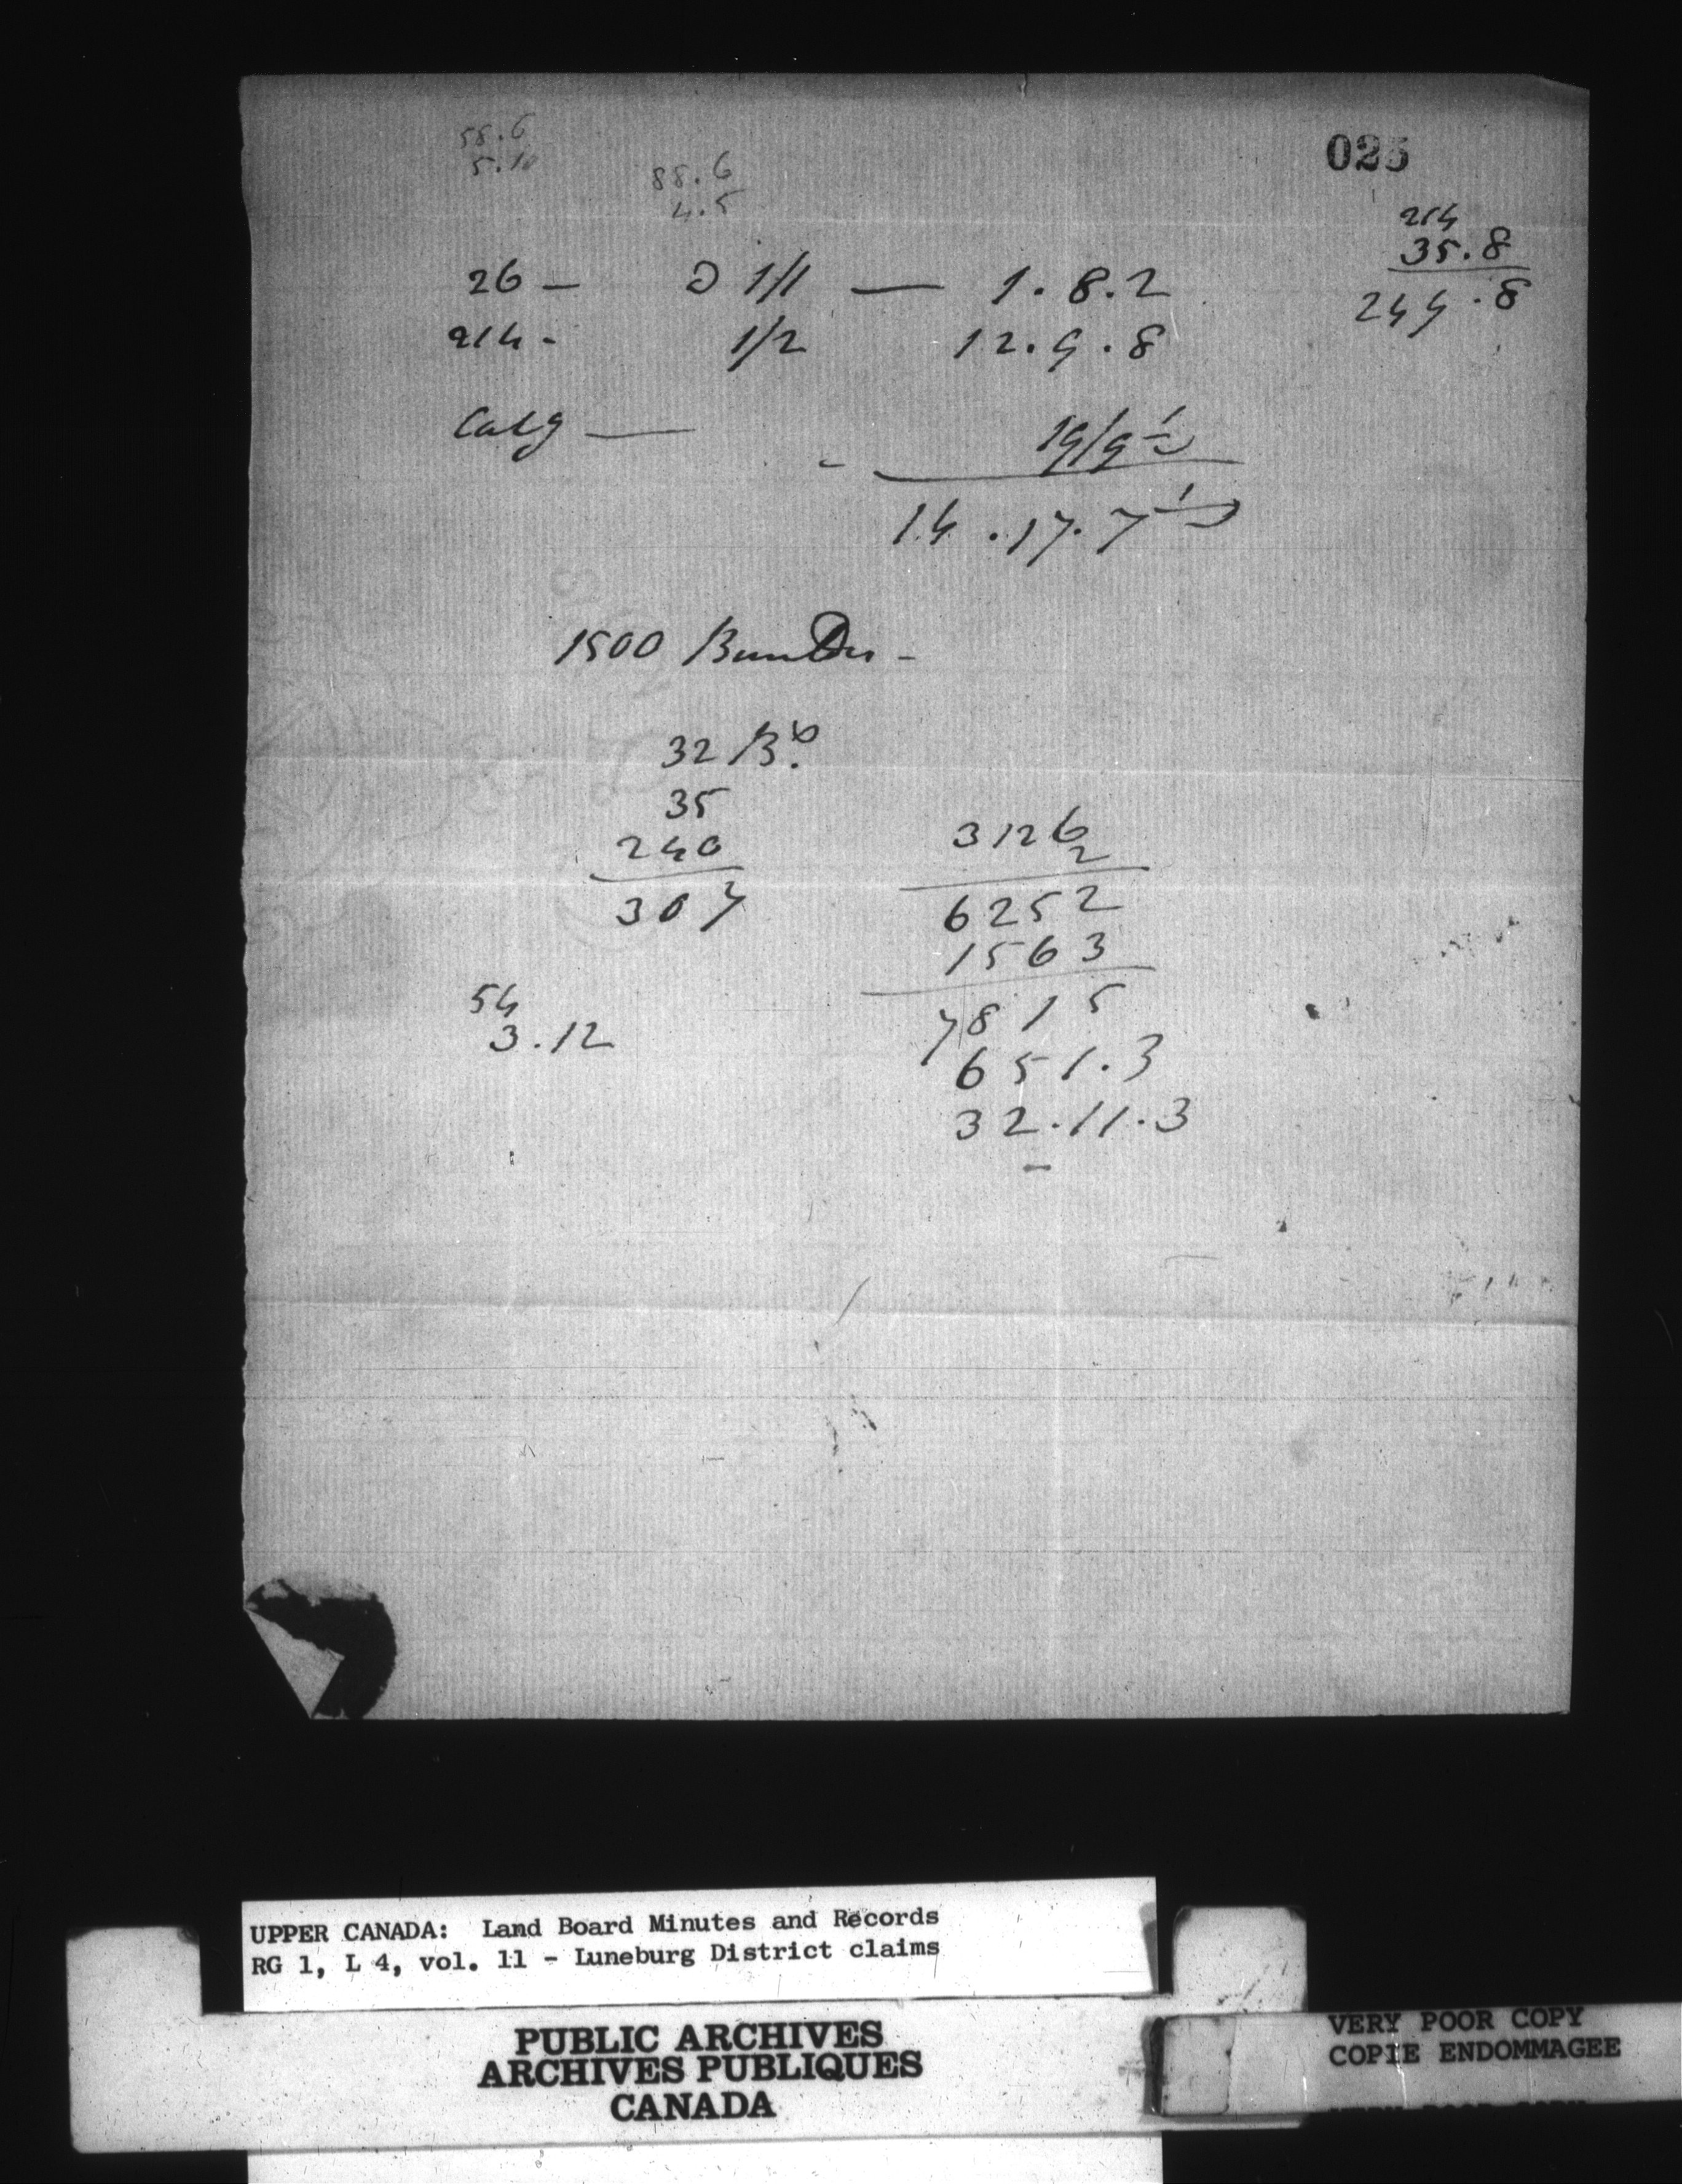 58.6
5.10
88.6
4.5
025
214
35.8
249.8
26 — @ 1/1 — 1.8.2
214 - 1/2 12.9.8
Catg — - 19/9½
14.17.7½
1500
32
35
240
307
3126
2
6252
1563
7815
651.3
32.11.3
54
3.12
UPPER CANADA: Land Board Minutes and Records
RG 1, L 4, vol. 11 - Luneburg District claims
PUBLIC ARCHIVES
ARCHIVES PUBLIQUES
CANADA
VERY POOR COPY
COPIE ENDOMMAGEE